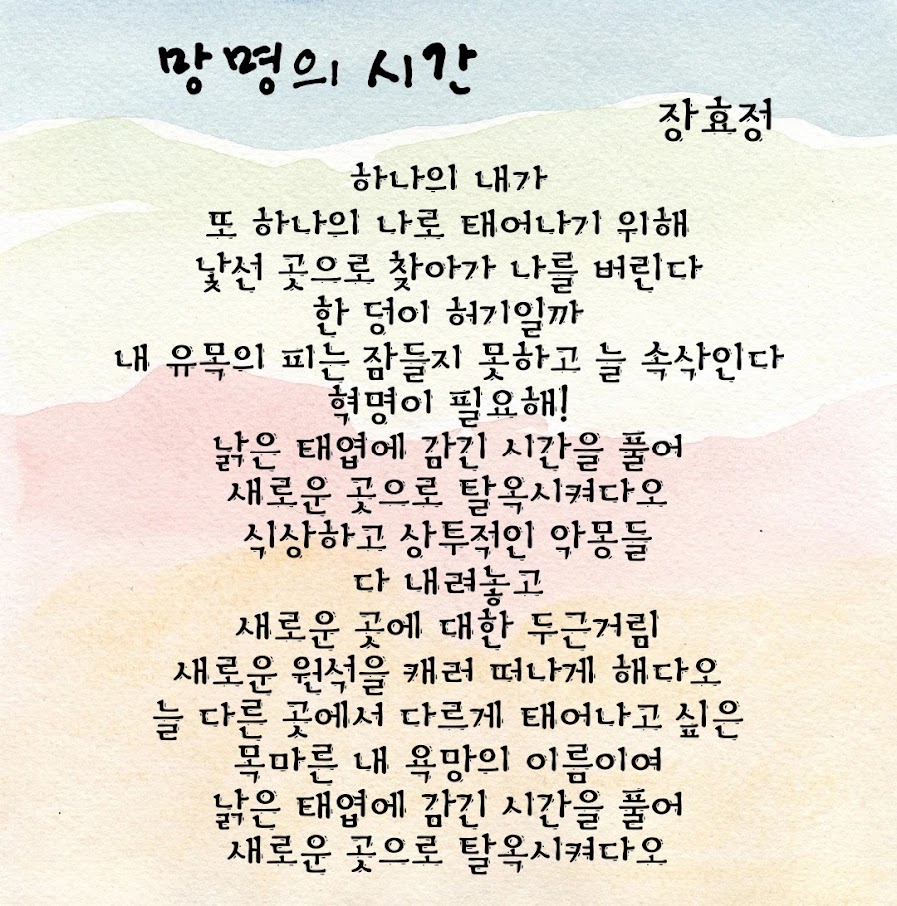 망명의 시간
장효정
하나의 내가
또 하나의 나로 태어나기 위해
낯선 곳으로 찾아가 나를 버린다
한 덩이 허기일까
내 유목의 피는 잠들지 못하고 늘 속삭인다
혁명이 필요해!
낡은 태엽에 감긴 시간을 풀어
새로운 곳으로 탈옥시켜다오
식상하고 상투적인 악몽들
다 내려놓고
새로운 곳에 대한 두근거림
새로운 원석을 캐러 떠나게 해다오
늘 다른 곳에서 다르게 태어나고 싶은
목마른 내 욕망의 이름이여
낡은 태엽에 감긴 시간을 풀어
새로운 곳으로 탈옥시켜다오